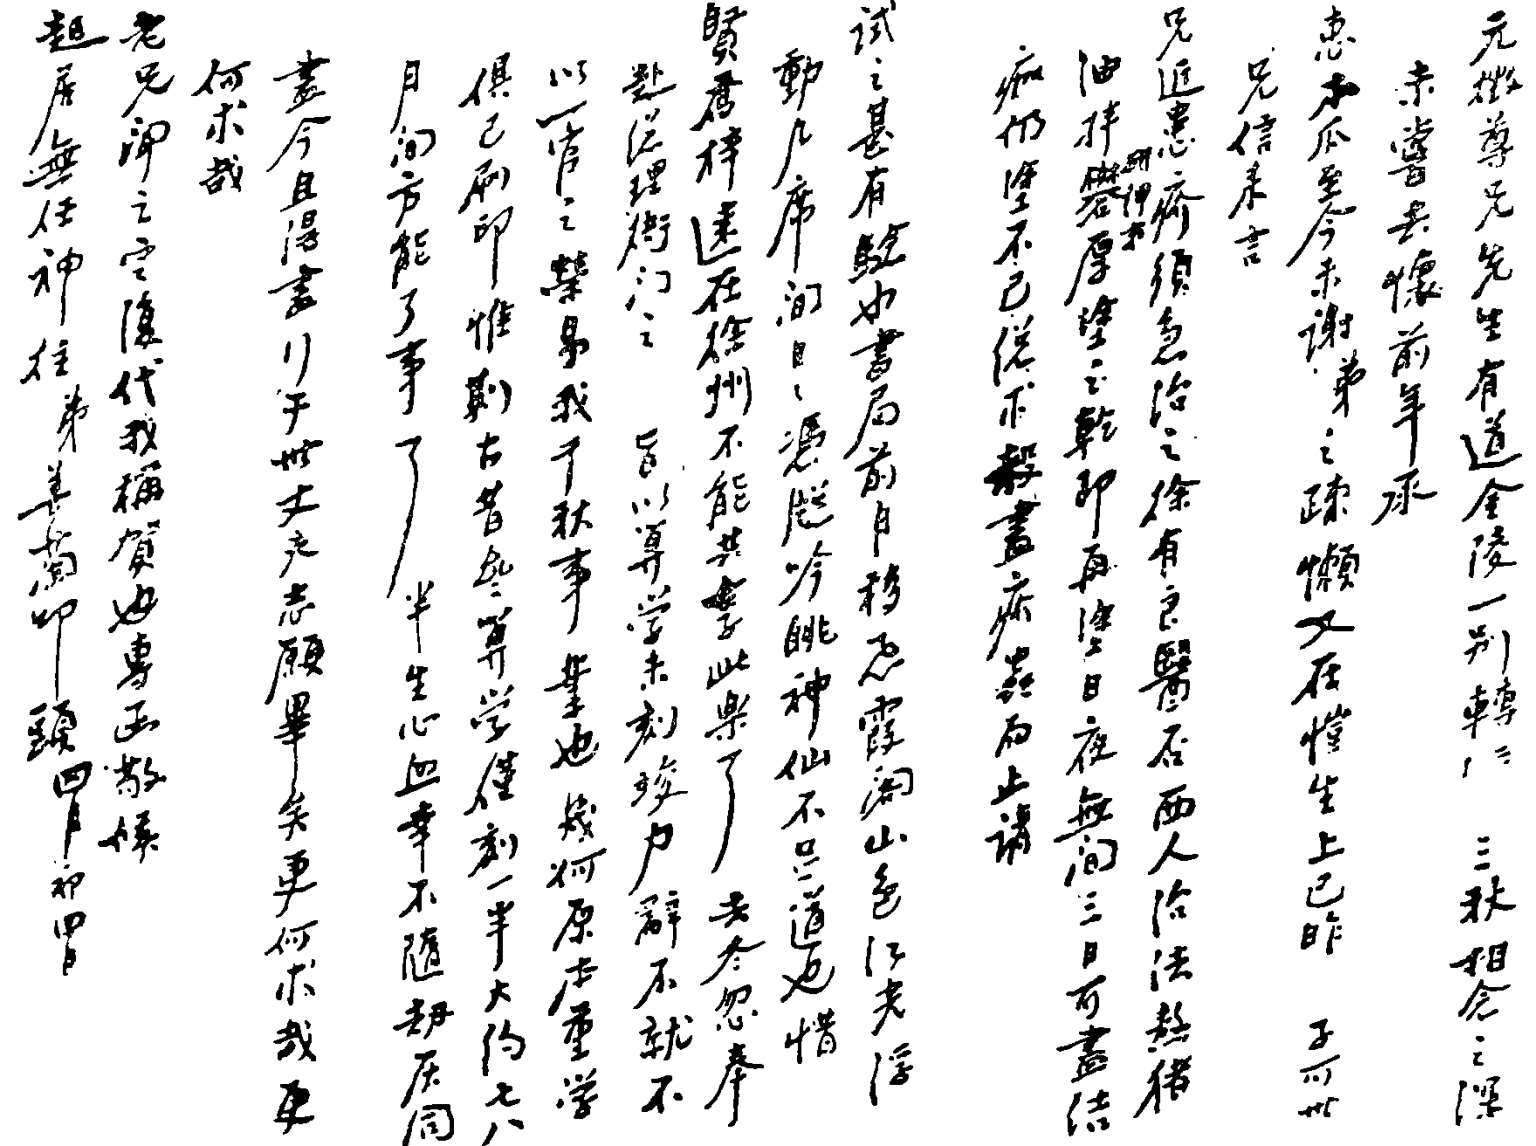 元徵尊兄先生有道金陵一別轉瞬三秋相念之深
未嘗去懷前年承
惠木瓜至今未謝弟之疎懶又在愷生上已昨 子可世
兄信來言
兄近患疥須急治之徐有良醫否西人治法熬猪
油拌礬
厚塗之乾即再塗日夜無間三日可盡結
痂仍塗不已總求殺盡疥蟲而止請
試之甚有驗也書局前月移悉霞閣山色江光浮
動几席間日日憑窗吟眺神仙不啻也惜
賢喬梓遠在徐州不能共享此樂了 去冬忽奉
赴總理衙門之 旨以算學未刻竣力辭不就不
以一官之榮易我千秋事業也幾何原本重學
俱已刷印惟則古昔齋算學僅刻一半大約七八
月間方能了事了 半生心血幸不隨劫灰同
盡今且得書行于世丈夫志願畢矣更何求哉更
何求哉
老兄聞之定復代我稱賀也專函敬候
起居無任神往弟善蘭叩頭四月初四日